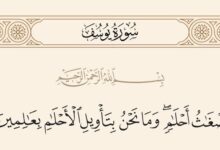 سُورَةُ يُوسُفَ
بِسْمِ ٱللَّهِ ٱلرَّحْمَٰنِ ٱلرَّحِيمِ
أَحْلَٰمٍۖ وَمَا نَحْنُ بِتَأْوِيلِ ٱلْأَحْلَٰمِ بِعَٰلِمِينَ